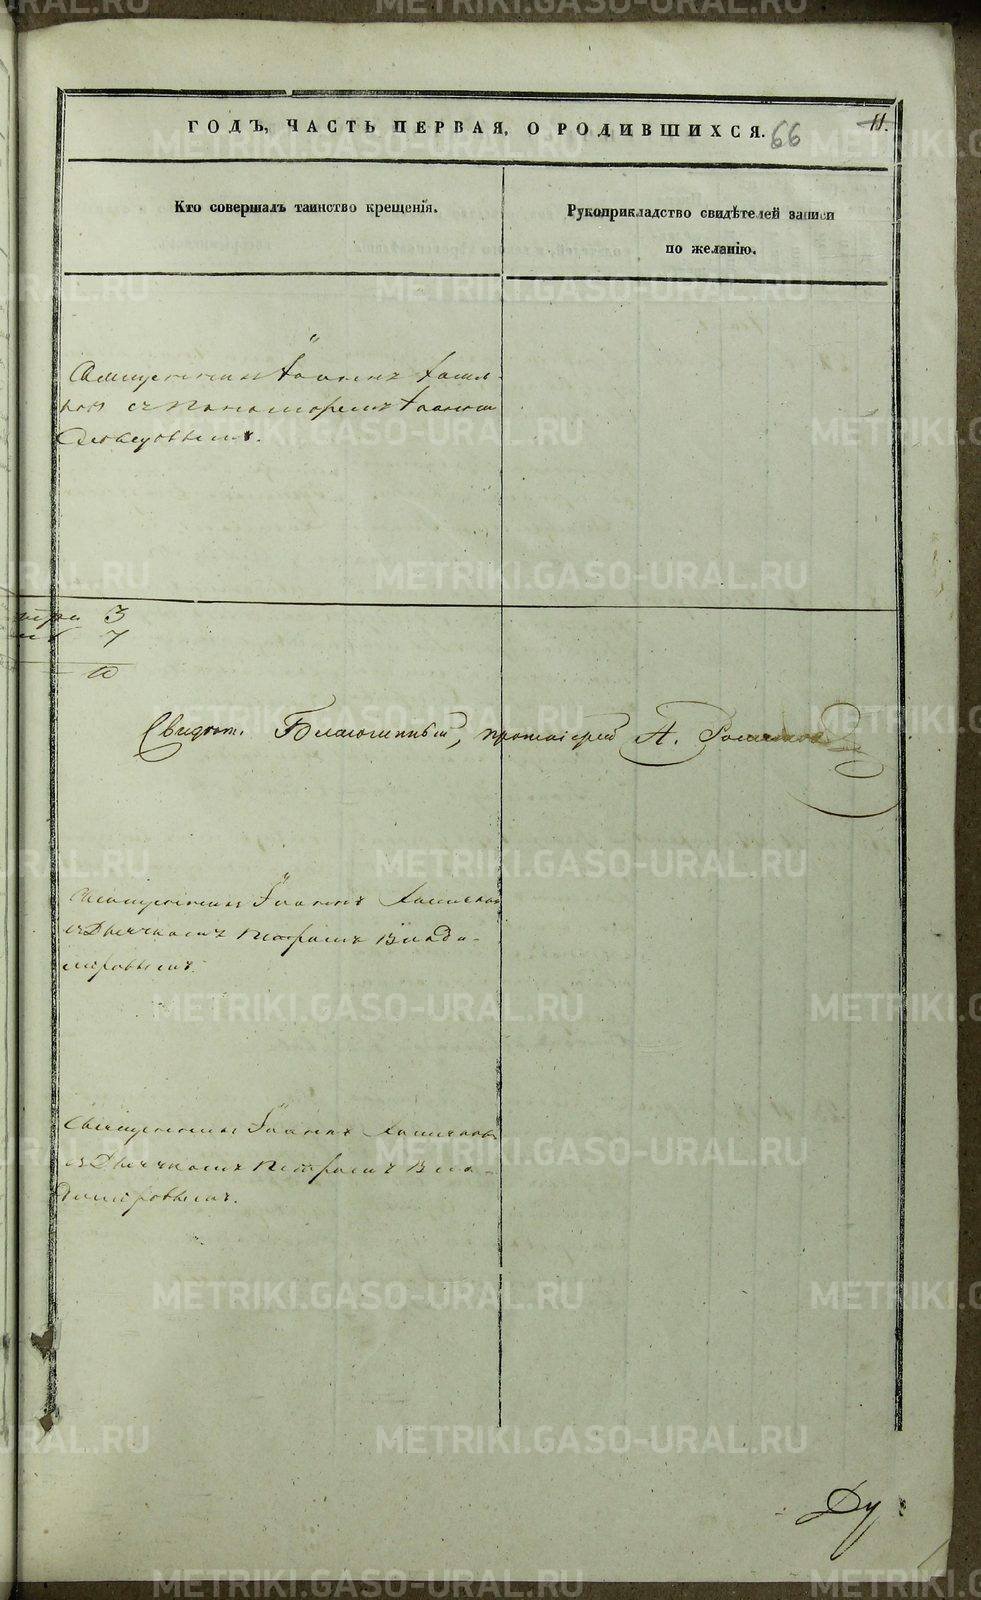 ГОДЪ, ЧАСТЬ ПЕРВАЯ, О РОДИВШИХСЯ. 66 11.
Кто совершалъ таинство крещенія.
Рукоприкладство свидѣтелей записи
по желанію.
Священникъ Іоаннъ Хамин-
ковъ съ Пономаремъ Іоанномъ
3
7
10
Свидѣт. Благочинный, протоіерей А.
Священникъ Іоаннъ
съ Дьячкомъ Петромъ Влади-
міровымъ.
Священникъ Іоаннъ
съ Дьячкомъ Петромъ Вла-
диміровымъ.
Ду
METRIKI.GASO-URAL.RU